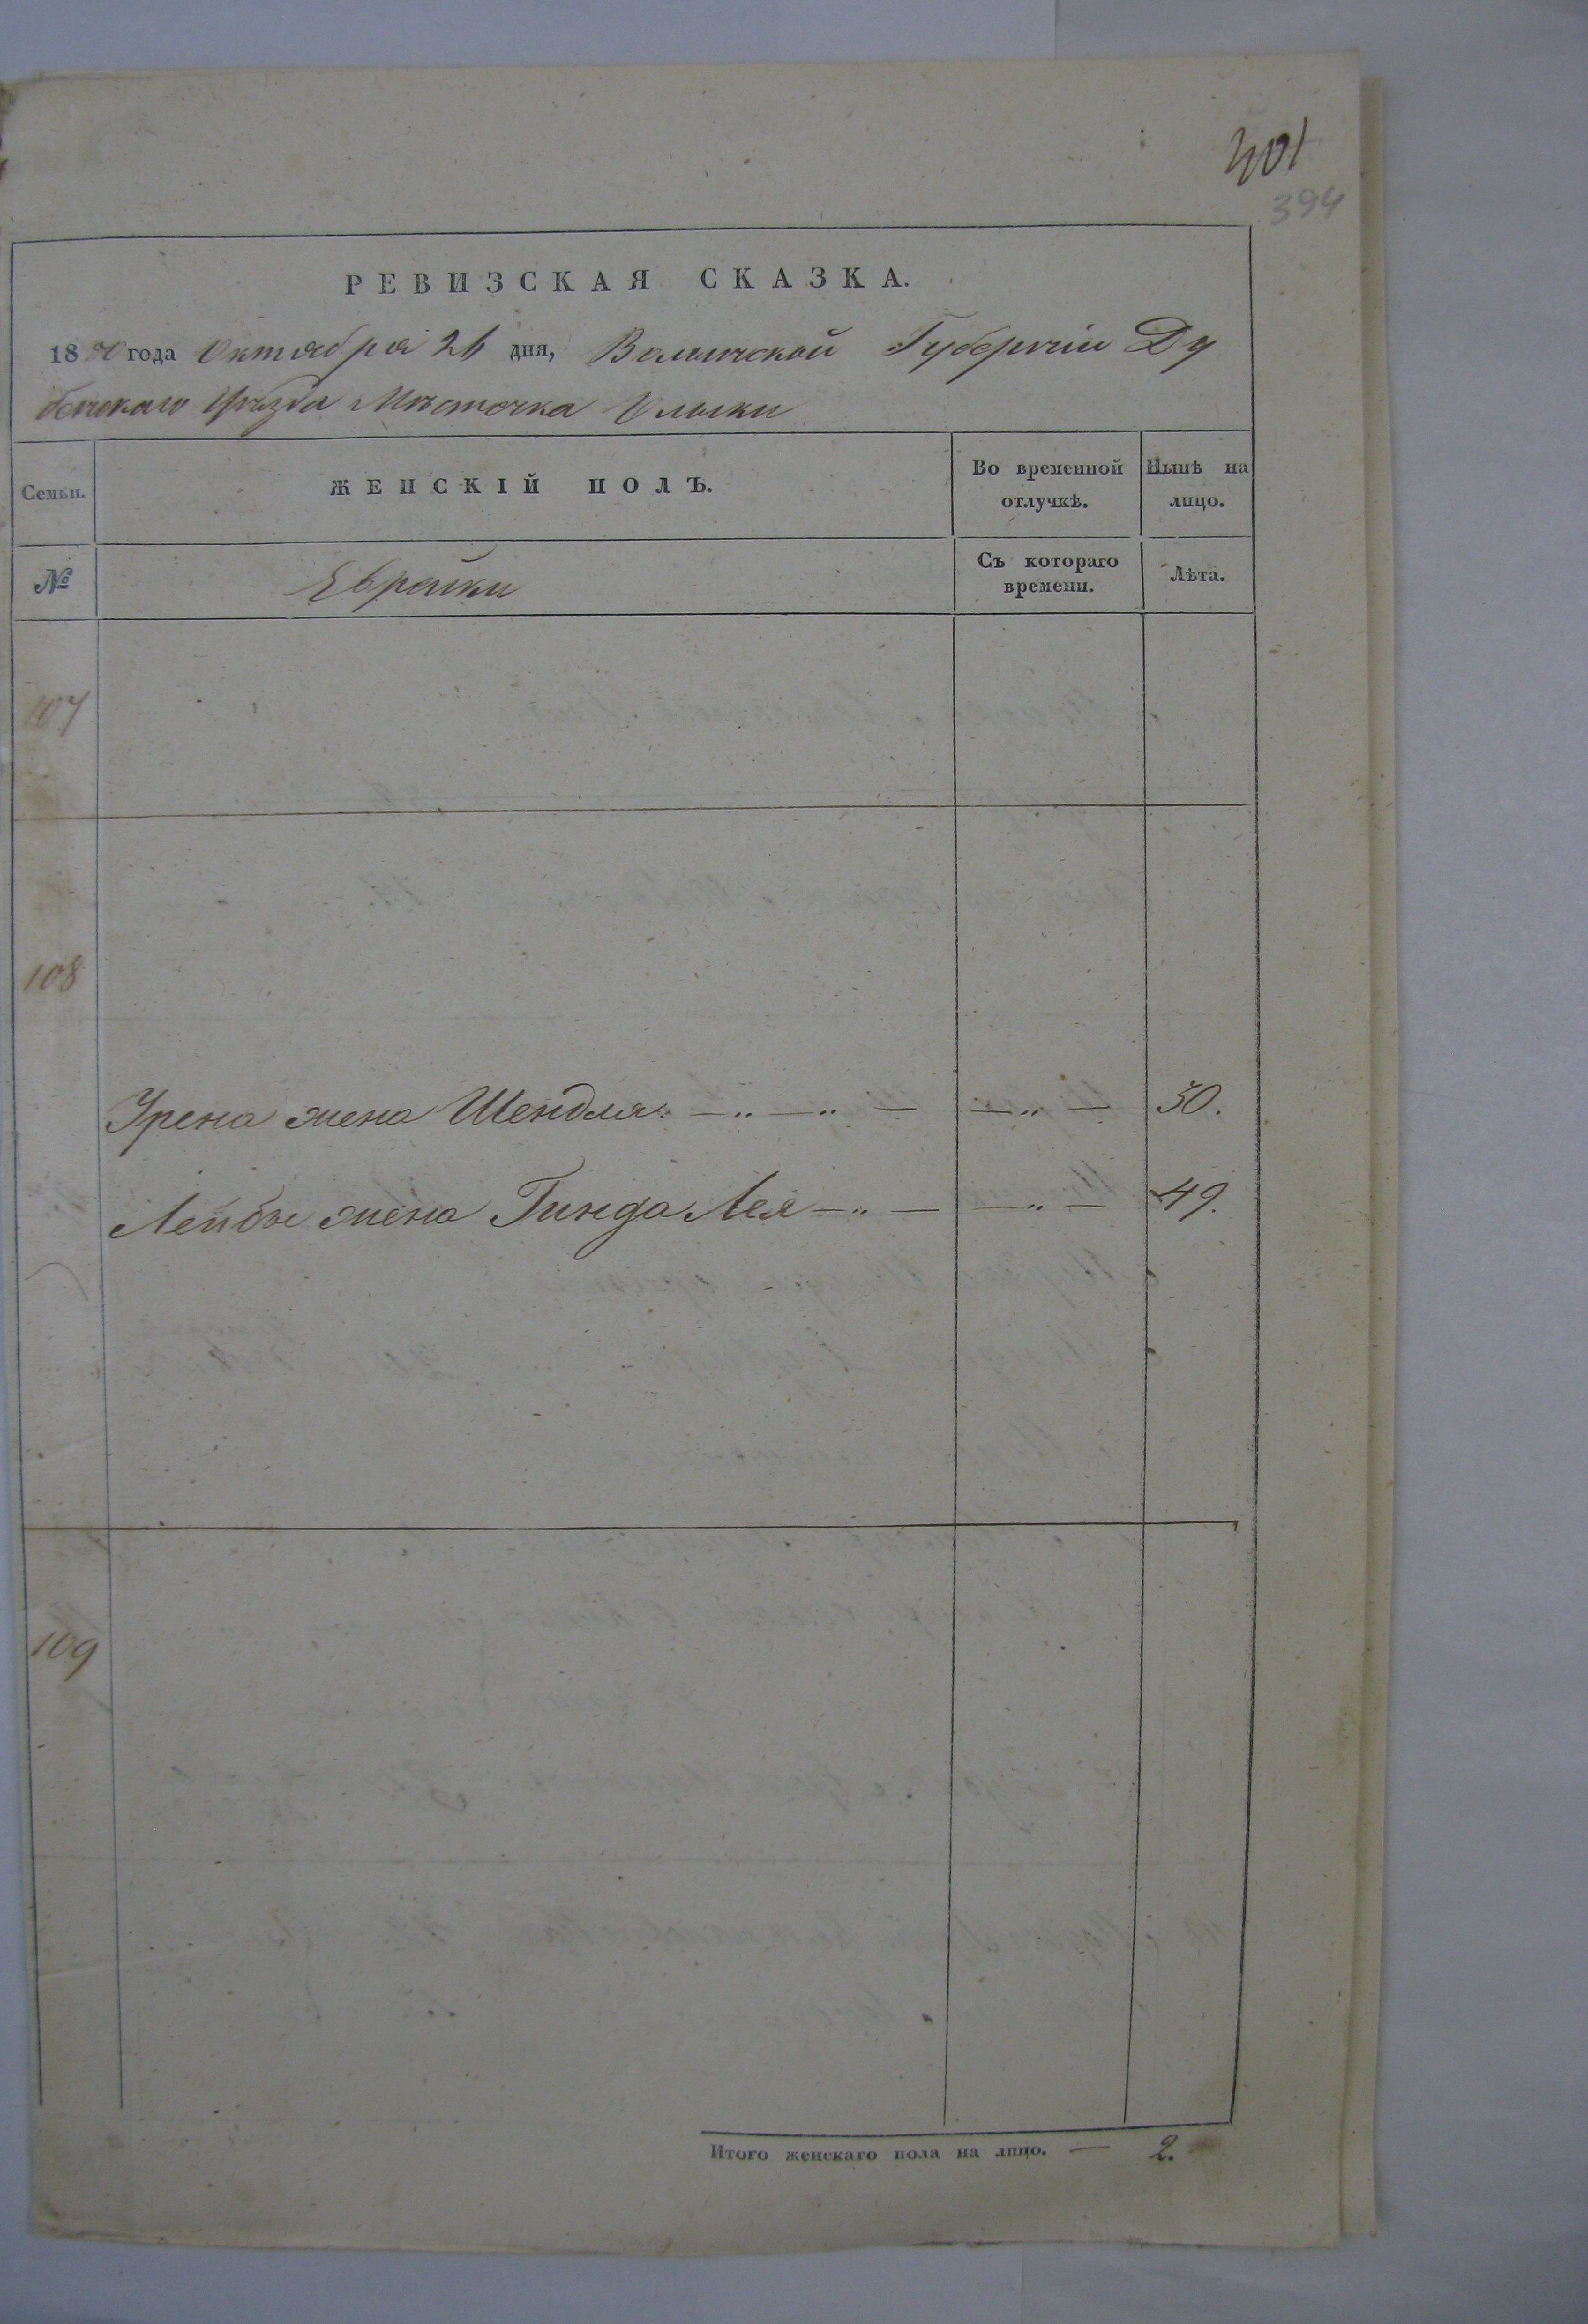 401
394
РЕВИЗСКАЯ СКАЗКА.
1850 года Октября 26 дня, Волынской Губерніи Ду
бенскаго Уѣзда Мѣстечка Олыки
Семьи. ЖЕНСКІЙ ПОЛЪ. Во временной отлучкѣ. Нынѣ на лицо.
№ Еврейки Съ котораго времени. Лѣта.
107
108
жена Шендля — „ — „ — — „ — 30.
Лейбы жена Гинда Лея — „ — — „ — 49.
109
Итого женскаго пола на лицо. — 2.